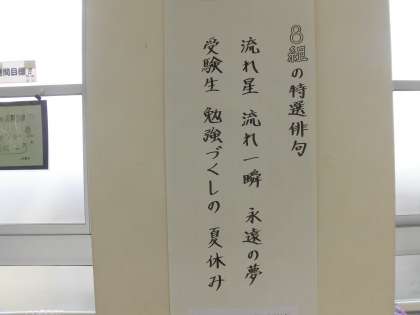 8組の特選俳句
流れ星 流れ一瞬 永遠の夢
受験生 勉強づくしの 夏休み